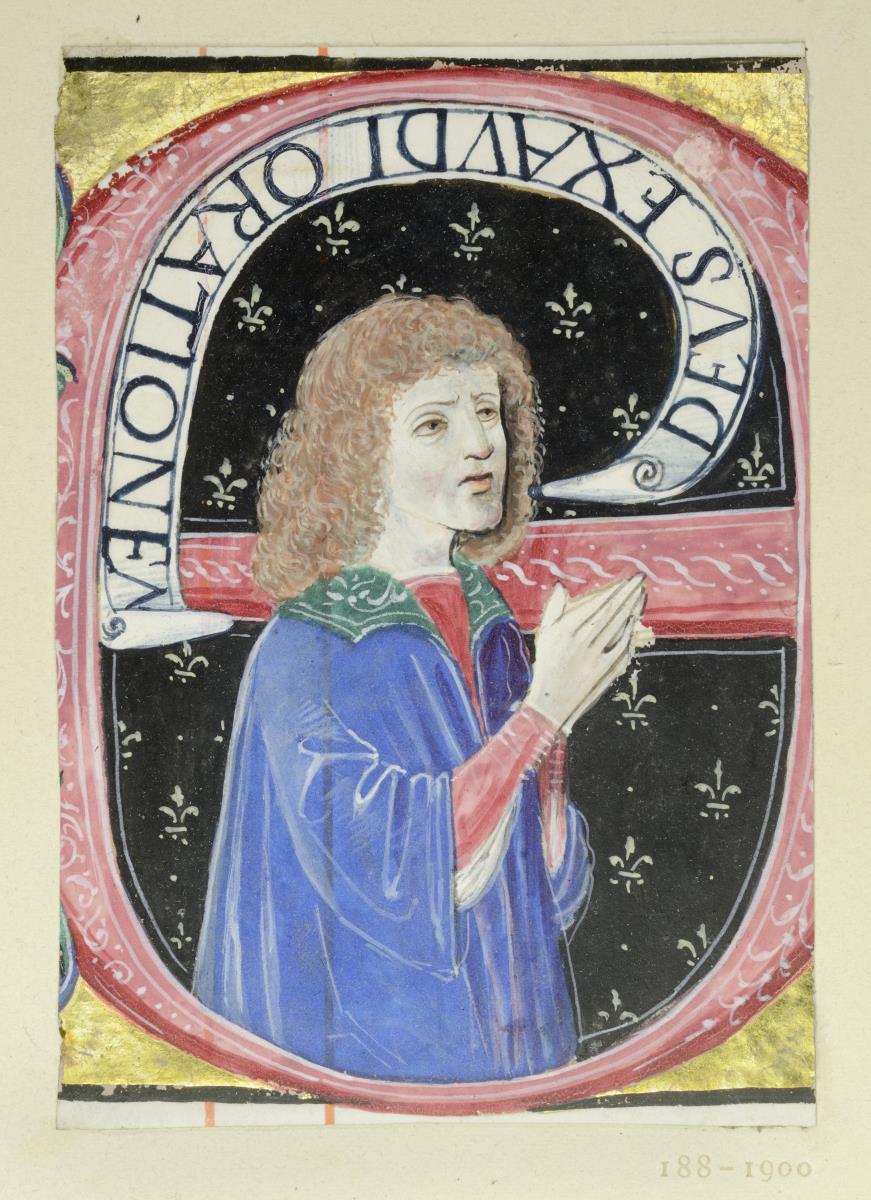 DEVS EXAVDI ORATIONEM
188-1900